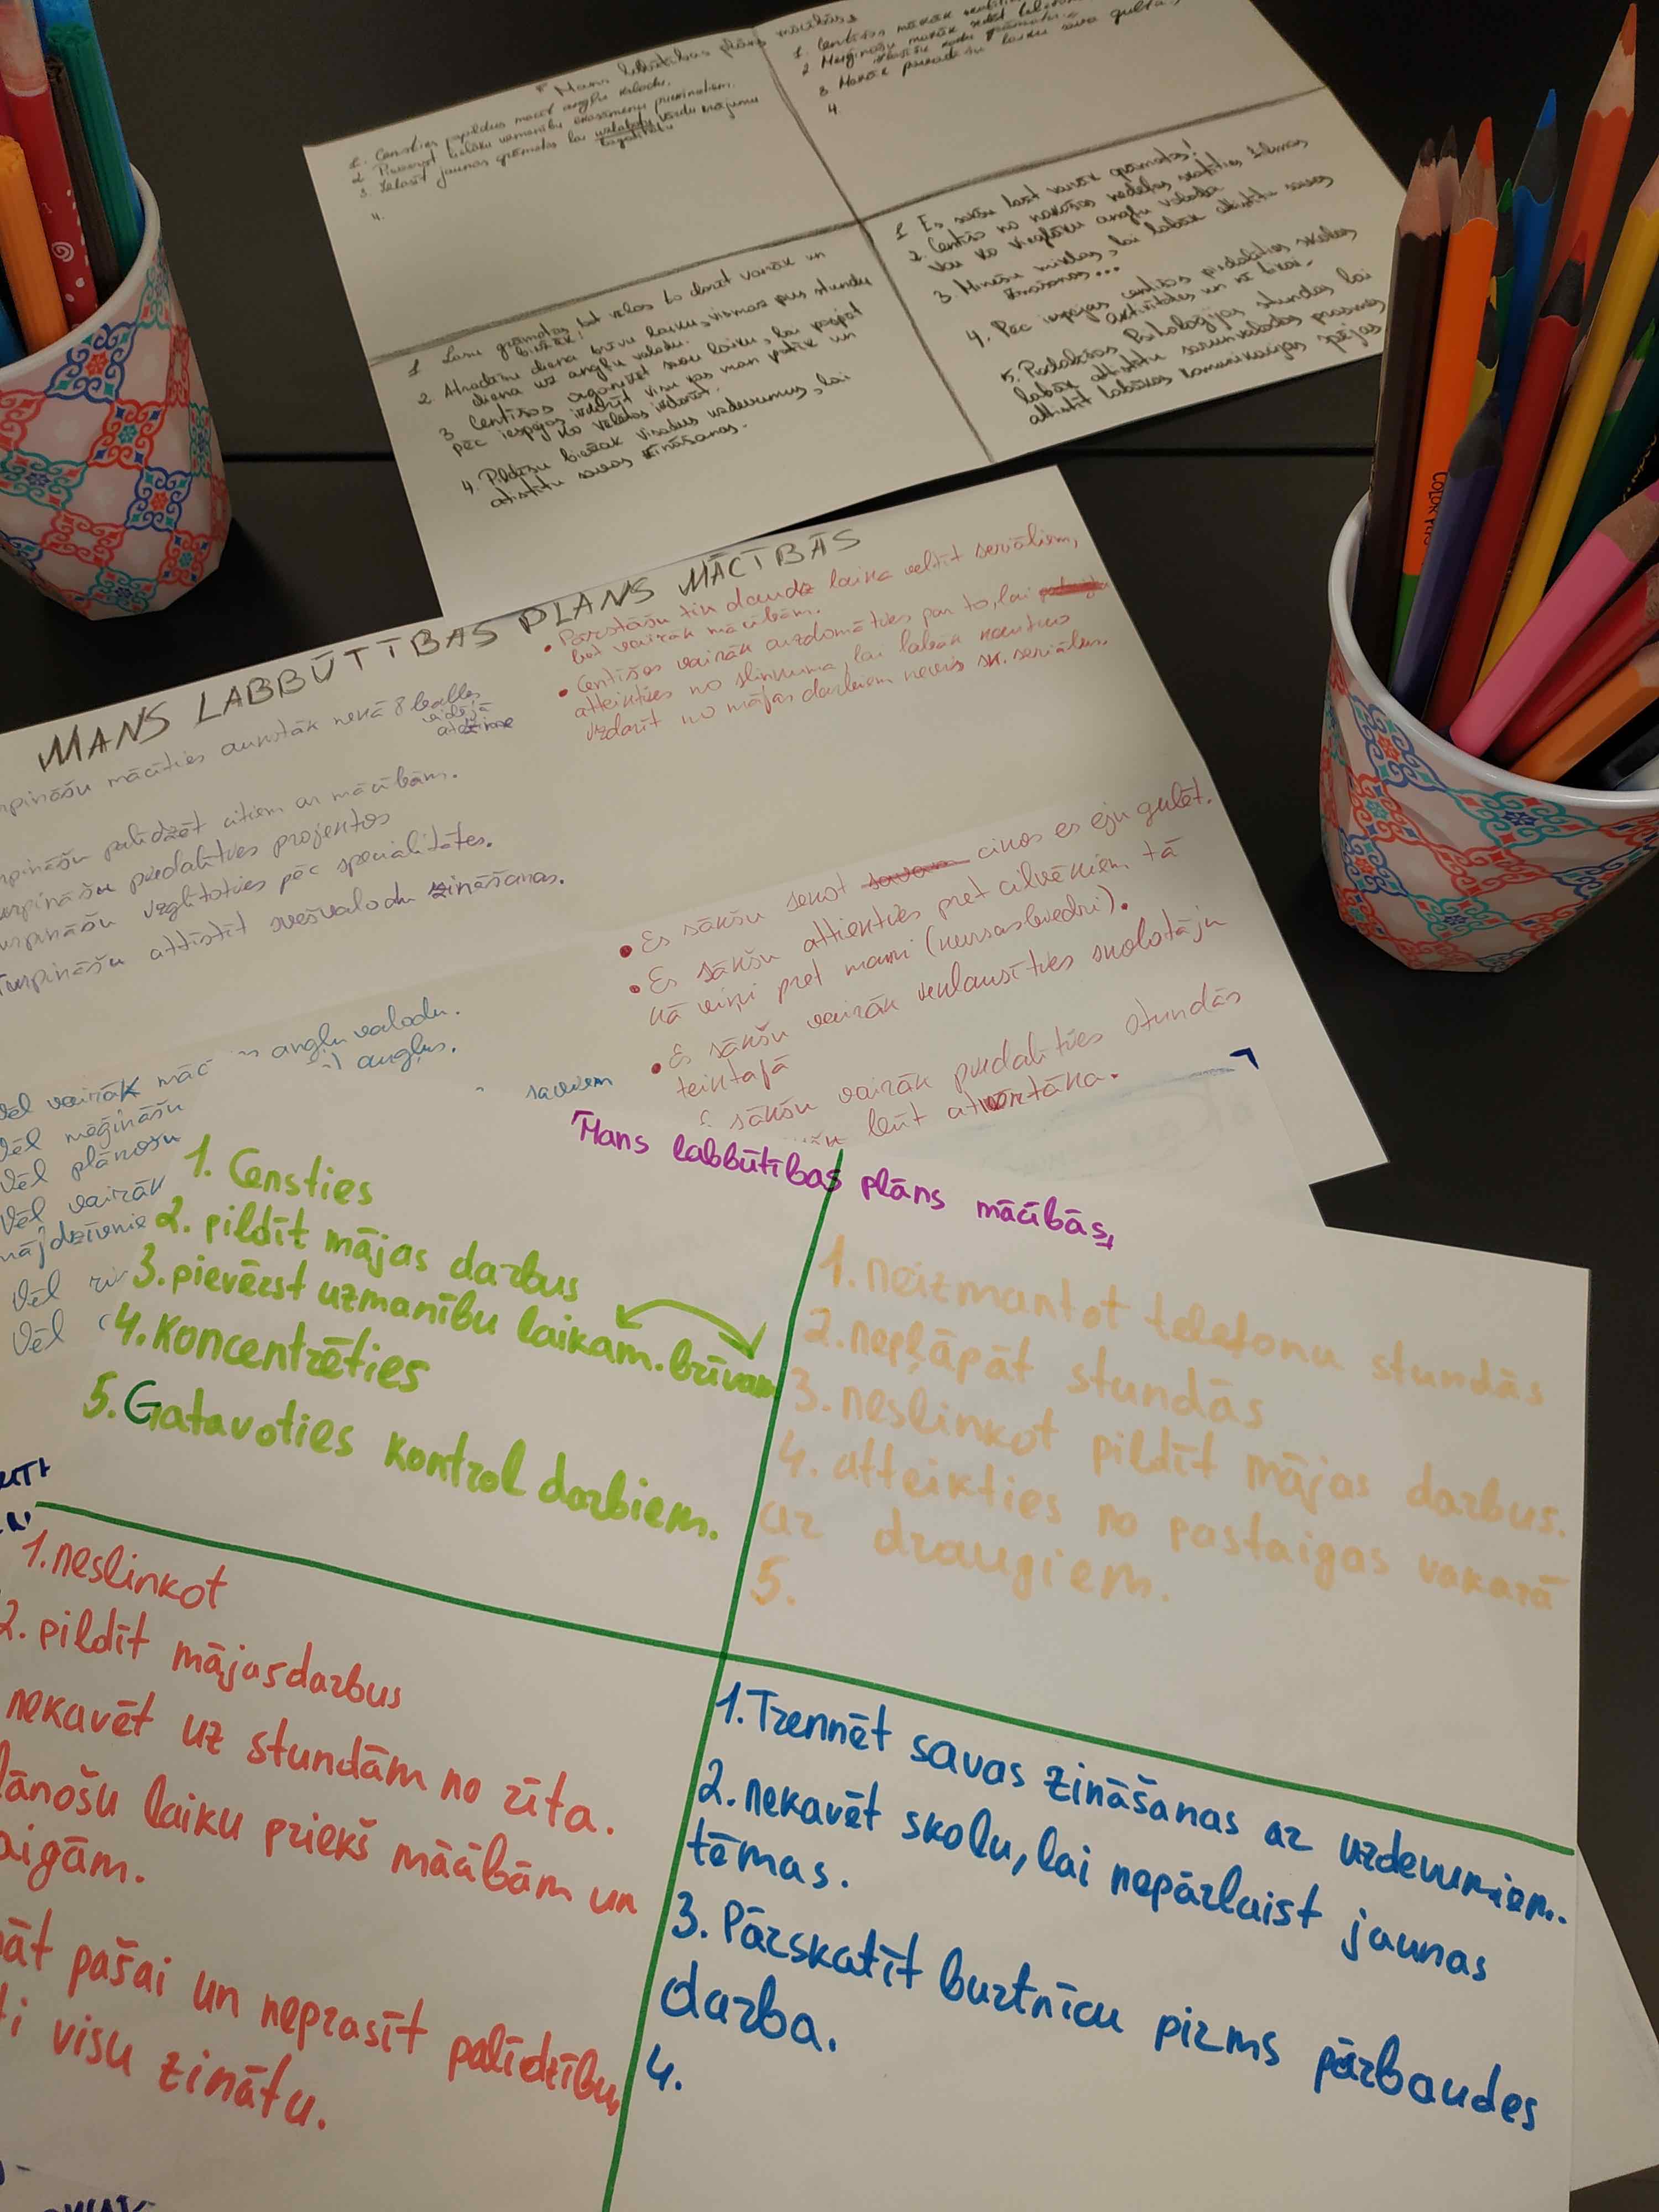 Mans labbūtības plāns mācībās
1. Censties papildus mācīt angļu valodu.
2. Pievērst lielāku uzmanību eksāmenu
3. Izlasīt jaunas grāmatas lai uzlabotu vārdu krājumu
4.
1. Censties vairāk
2. Mēģināšu mazāk
3. Mazāk pavadīšu laiku savā gultā,
4.
1. Lasu grāmatas bet vēlos to darīt vairāk un
biežāk!
2. Atradīšu dienā brīvu laiku, vismaz pus stundu
dienā uz angļu valodu.
3 Centīšos organizēt savu laiku, lai paspēt
pēc iespējas izdarīt visu kas man patīk un
ko vēlētos izdarīt.
4. Pildīšu biežāk visādus uzdevumus, lai
attīstītu savas zināšanas.
1 Es sākšu lasīt vairāk grāmatas!
2. Centīšos no nākošās nedēļas skatīties filmas
vai ko vieglāku angļu valodā
3. Minēšu mīklas, lai labāk attīstītu savas
zināšanas...
4. Pēc iespējas centīšos piedalīties skolas
aktivitātēs un ne tikai.
5. Piedalīšos Psiholoģijas stundās lai
labāk attīstītu sarunvalodas prasmes
attīstīt labākas komunikācijas spējas
MANS LABBŪTĪBAS PLANS MĀCĪBĀS
mācīties augstāk nekā 8 balles
vidējā
atzīme
palīdzēt citiem ar mācībām.
piedalīties projektos
izglītoties pēc specialitātes.
Turpināšu attīstīt svešvalodu zināšanas.
• Pārstāšu tik daudz laika veltīt seriāliem,
bet vairāk mācībām.
• Centīšos vairāk aizdomāties par to, lai
atteikties no slinkuma, lai labāk kautko
izdarīt no mājas darbiem nevis sk. seriālus.
• Es sākšu sekot cikos es eju gulēt.
• Es sākšu attiekties pret cilvēkiem tā
kā viņi pret mani (kursasbiedri).
• Es sākšu vairāk ieklausīties skolotāju
teiktajā
sākšu vairāk piedalīties stundās
būt atvērtāka.
Vēl vairāk māc angļu valodu.
angļus.
Vēl mēģināšu saviem
Vēl plānošu
Vēl vairāk
mājdzīvnie
Vēl
Vēl
Mans labbūtības plāns mācībās,
1. Censties
2. pildīt mājas darbus
3. pievērst uzmanību laikam. brīvam
4. Koncentrēties
5. Gatavoties kontrol darbiem.
1. neizmantot telefonu stundās
2. nepļāpāt stundās
3. neslinkot pildīt mājas darbus.
4. atteikties no pastaigas vakarā
ar draugiem.
5.
1. neslinkot
2. pildīt mājasdarbus
nekavēt uz stundām no rīta.
lānošu laiku priekš mācībām un
aigām.
āt pašai un neprasīt palīdzību,
ti visu zinātu.
1. Trennēt savas zināšanas ar uzdevumiem.
2. nekavēt skolu, lai nepārlaist jaunas
tēmas.
3. Pārskatīt burtnīcu pirms pārbaudes
darba.
4.